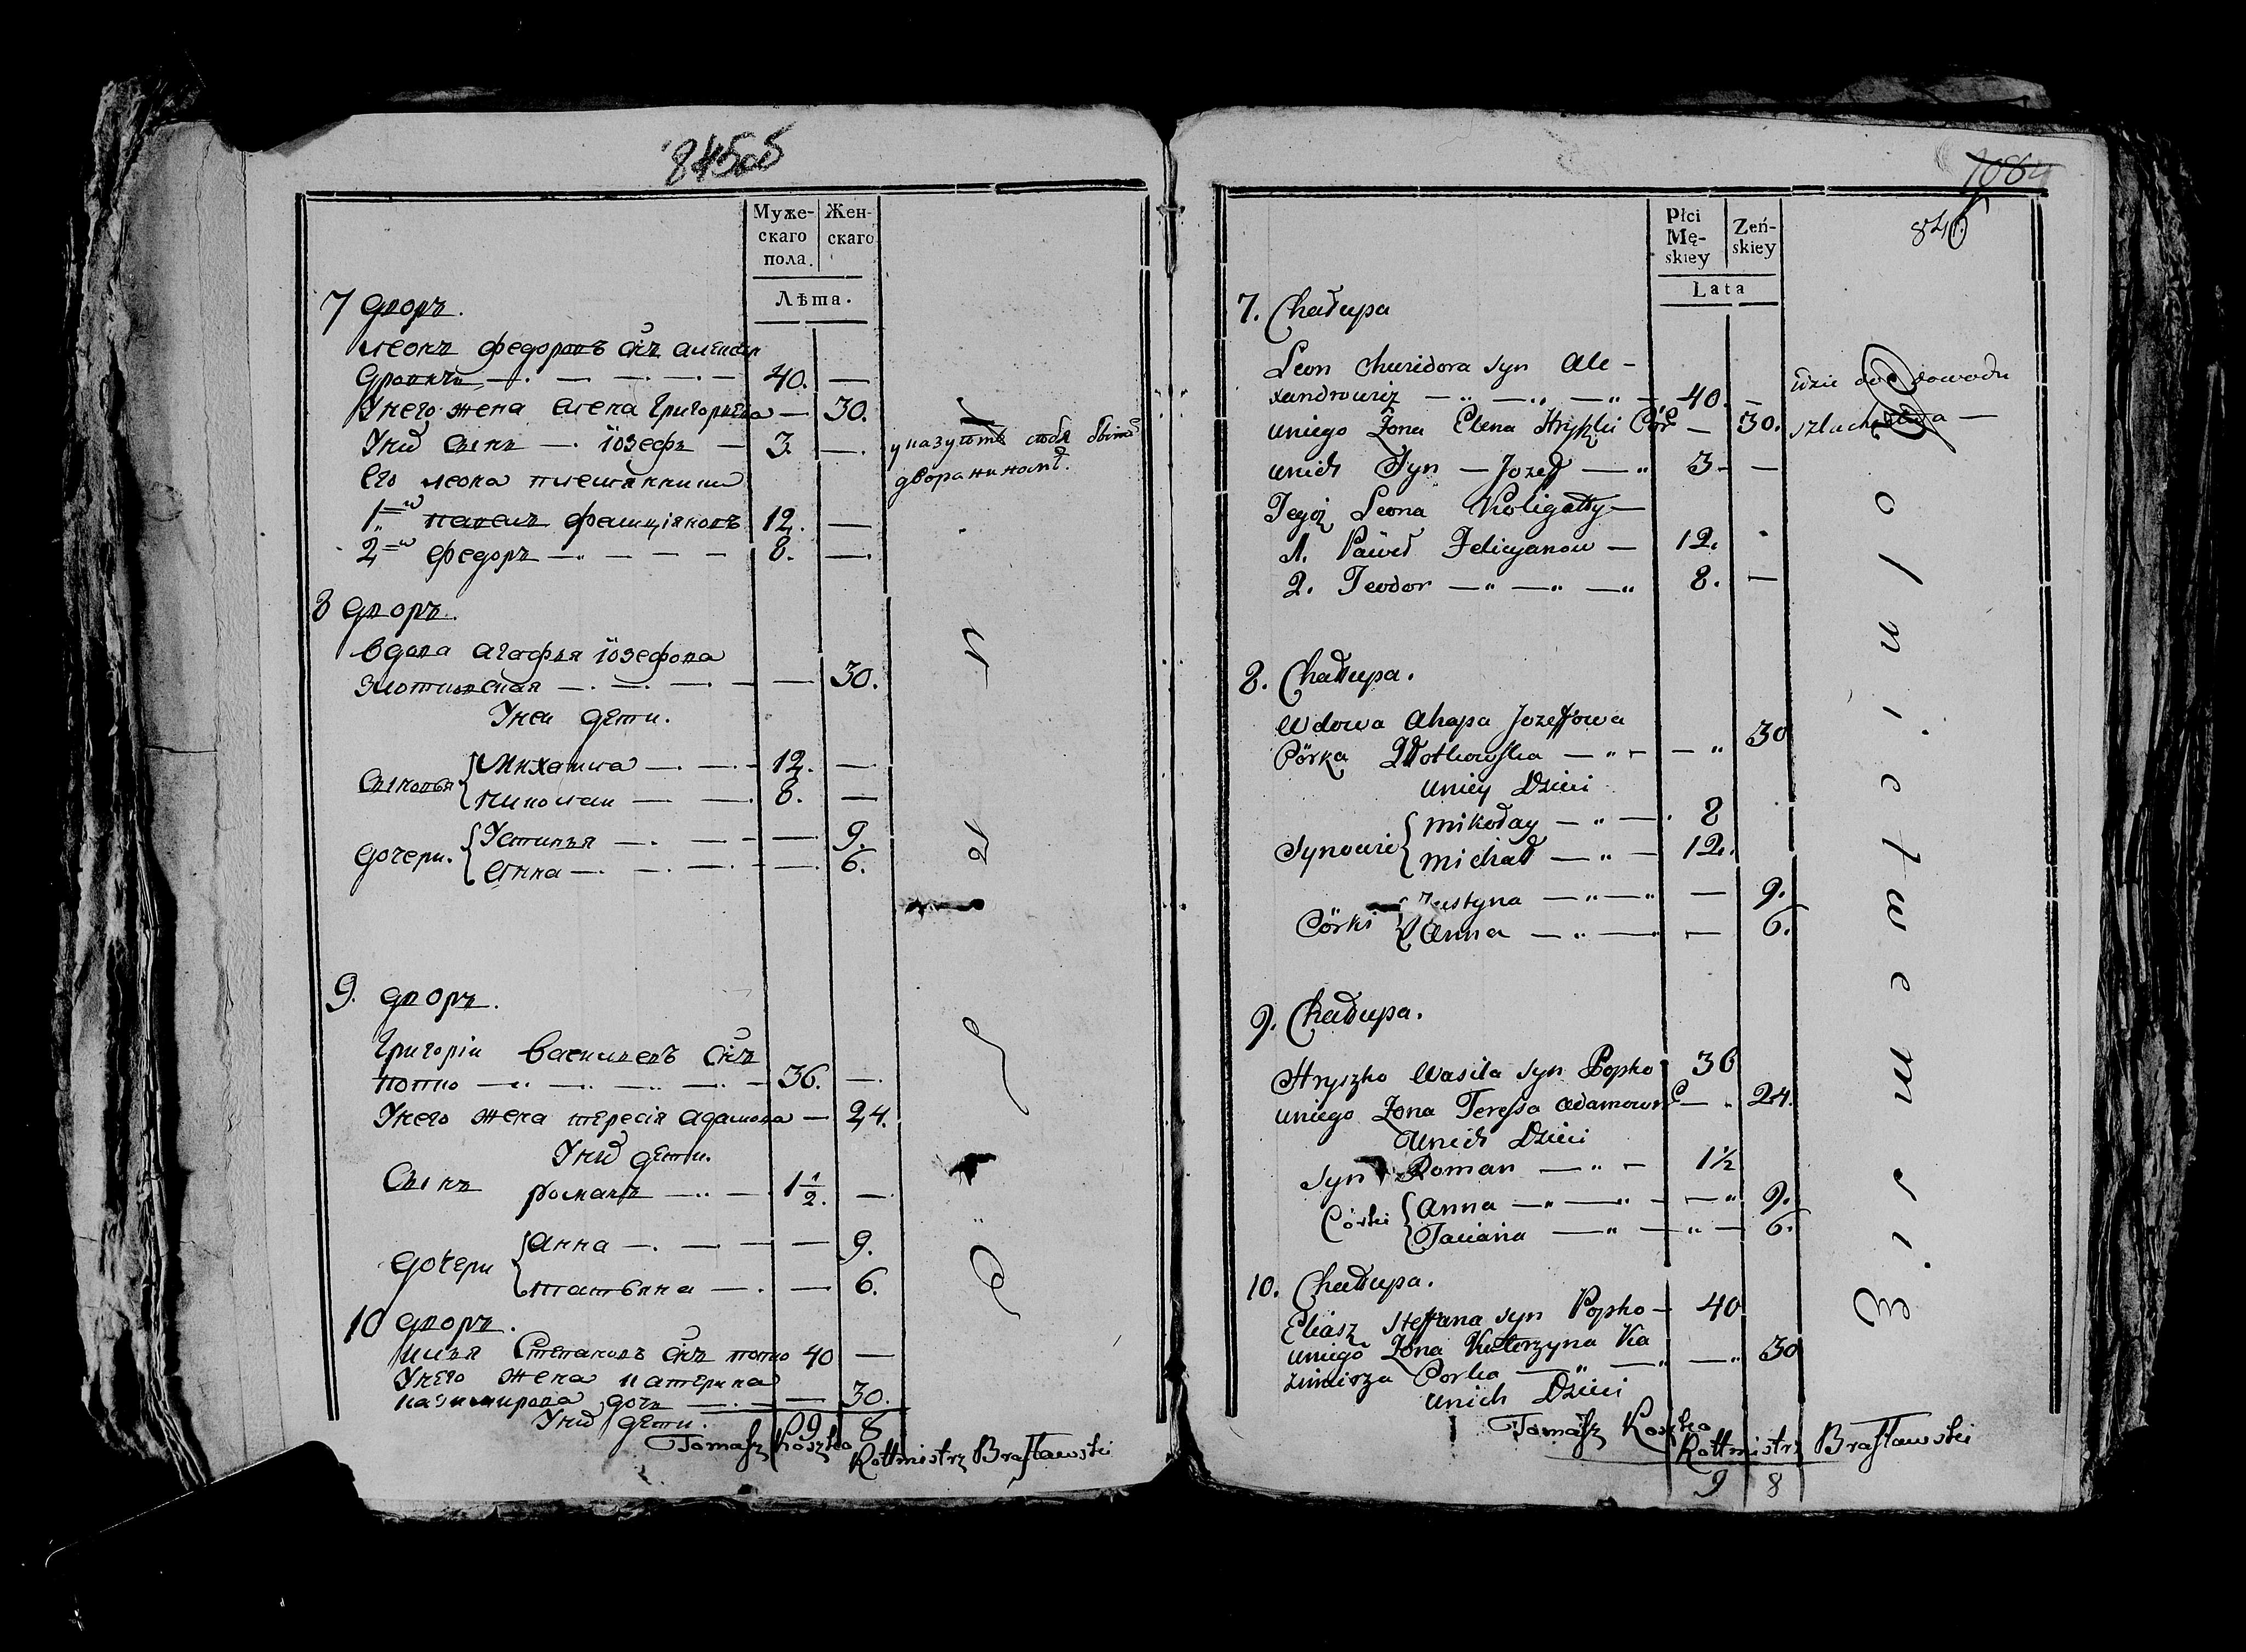 845об
Муже-
скаго
пола.
Жен-
скаго
Лѣта.
7 дворъ.
Леонъ Федоровъ снъ Александ
ровичъ 40. —
Унего жена Елена Григорьева — 30.
Уних сынъ — Іозефъ — 3. —
Его Леона племянники
1й Павелъ Фелиціяновъ 12. —
2й Федоръ — 8. —
указуютъ себя быть
дворяниномъ.
8 дворъ.
Вдова Агафья Іозефова
Злотковская — 30.
Унеи дети.
Сыновья
Михаила — 12. —
Николаи — 8. —
дочери.
Устинья — 9.
Анна — 6.
9. дворъ.
Григоріи Васильевъ снъ
Попко — 36. —
Унего жена Тересія Адамова — 24.
Уних дети.
Сынъ Романъ — 1 1/2. —
дочери
Анна — 9.
Татьяна — 6.
10 дворъ.
Илья Степановъ снъ Попко 40 —
Унего жена Катерина
Казимирова дочь — 30.
Уних дети.
9 8
Tomasz Koszko Rottmistrz Brasławski
1084
846
Płci
Mę-
skiey
Zeń-
skiey
Lata
7. Chałupa
Leon Chwidora syn Ale-
xandrowicz — 40. —
uniego Żona Elena Hryszki Cór — 30.
unich Syn — Jozeff — 3 — —
Tegoż Leona Koligatty —
1. Paweł Felicyanow — 12.
2. Teodor — 8. —
idzie do dowodu
szlachectwa —
8. Chałupa.
Wdowa Ahapa Jozeffowa
Córka Złotkowska — 30
uniey Dzieci
Synowie
Mikołay — 8
Michał — 12.
Córki
Justyna — 9.
Anna — 6.
9. Chałupa.
Hryszko Wasila syn Popko 36
uniego Żona Teressa Adamowna — 24.
Unich Dzieci
Syn Roman — 1½
Córki
Anna — 9.
Taciana — 6.
10. Chałupa.
Eliasz Steffana syn Popko — 40
uniego Żona Katerzyna Ka
zimirza Corka — 30
unich Dzieci
Tomasz Koszko Rottmistrz Brasławski
9 8